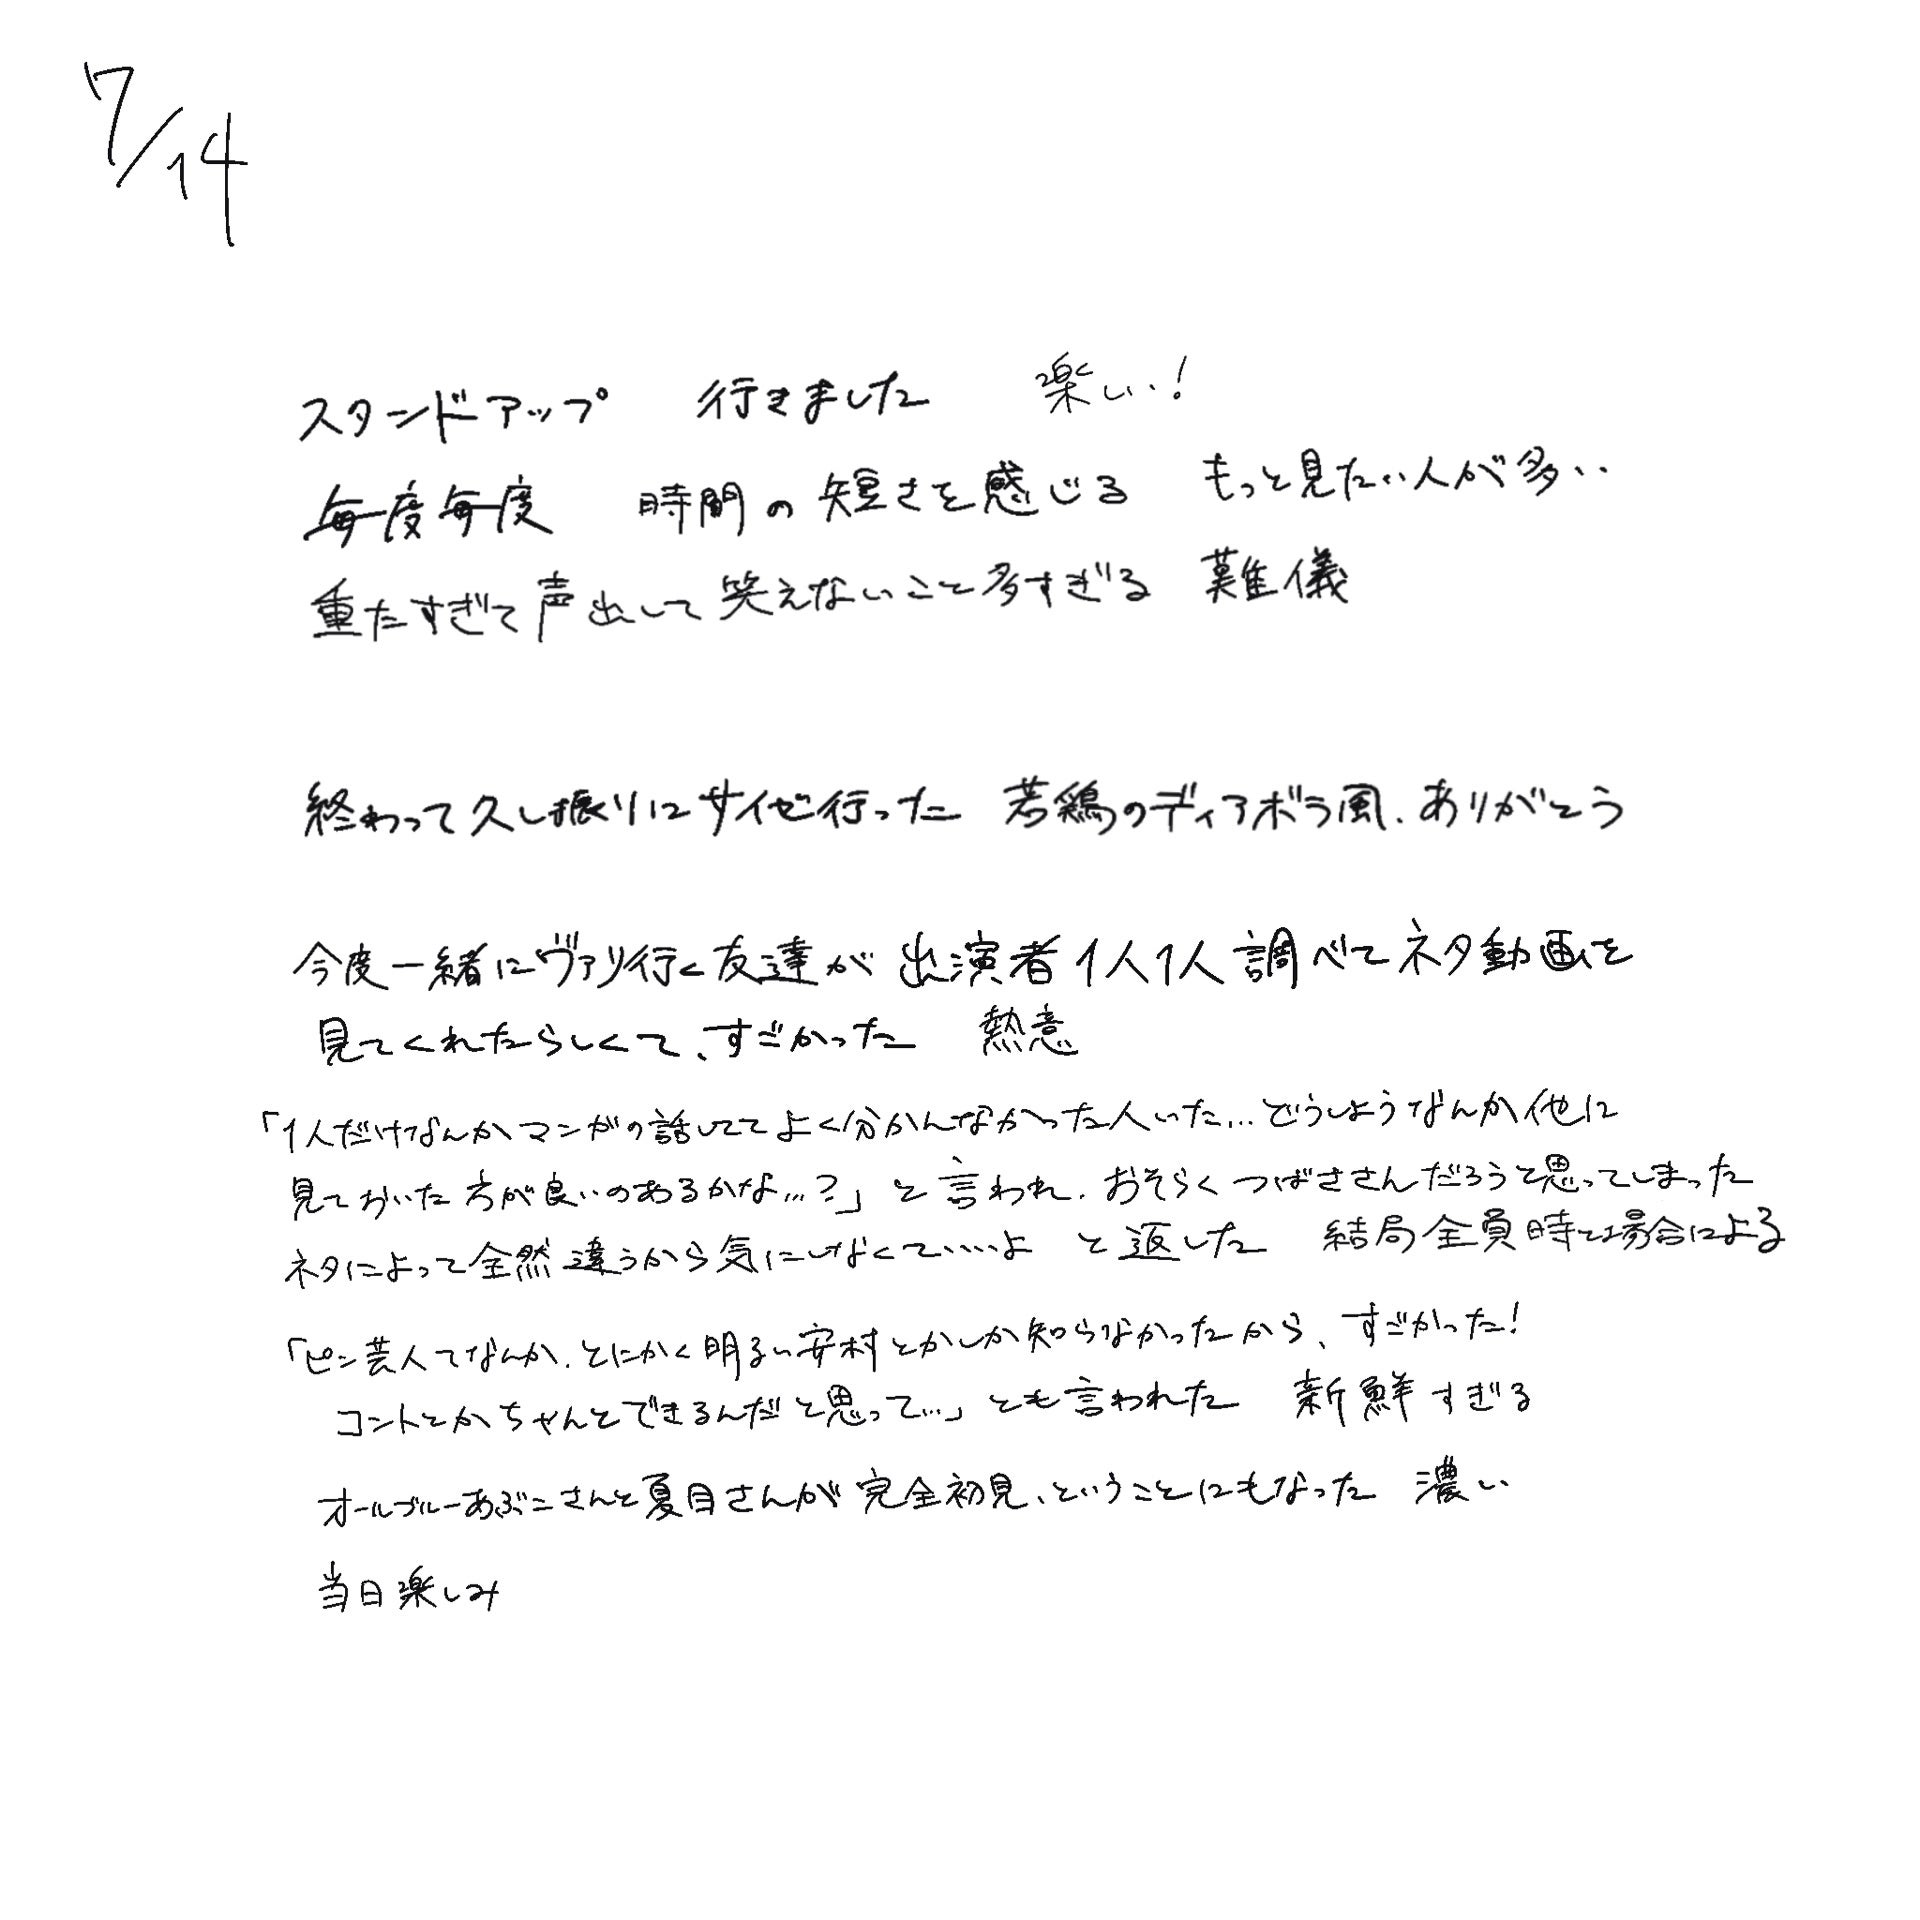 7/14
スタンドアップ 行きました 楽しい!
毎度毎度 時間の短さを感じる もっと見たい人が多い
重たすぎて声出して笑えないこと多すぎる 難儀
終わって久し振りにサイゼ行った 若鶏のディアボラ風、ありがとう
今度一緒にヴァリ行く友達が出演者1人1人調べてネタ動画を
見てくれたらしくて、すごかった 熱意
「1人だけなんかマンガの話しててよく分かんなかった人いた...どうしようなんか他に
見ておいた方が良いのあるかな...?」と言われ、おそらくつばささんだろうと思ってしまった
ネタによって全然違うから気にしなくていいよ と返した 結局全員時と場合による
「ピン芸人てなんか、とにかく明るい安村とかしか知らなかったから、すごかった!
コントとかちゃんとできるんだと思って...」とも言われた 新鮮すぎる
オールブルーあぶこさんと夏目さんが完全初見、ということにもなった 濃い
当日楽しみ